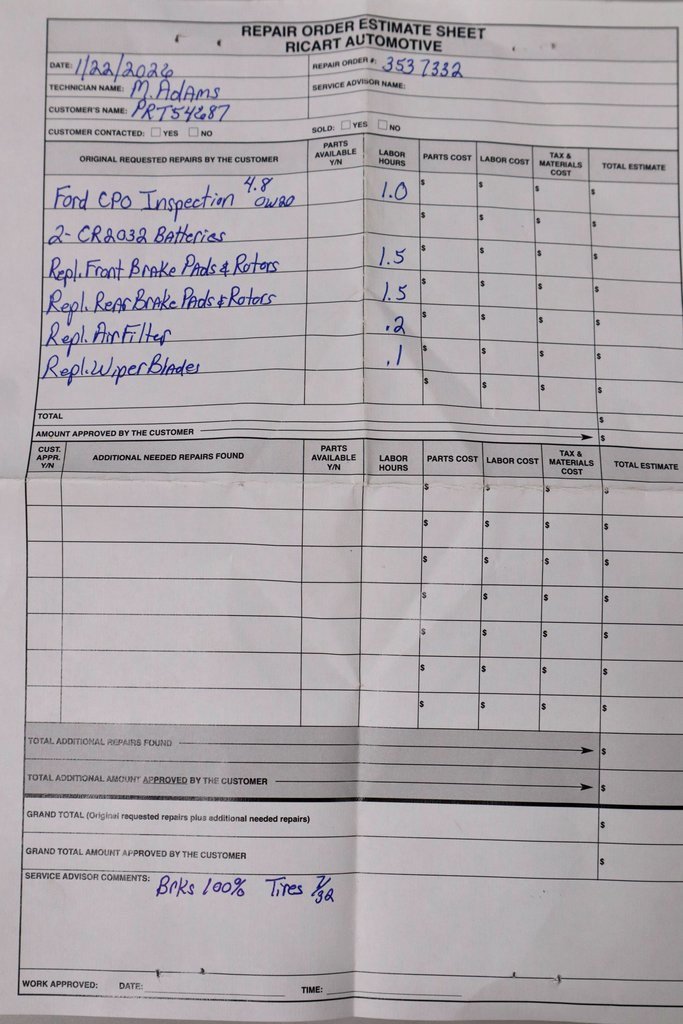 REPAIR ORDER ESTIMATE SHEET
RICART AUTOMOTIVE
DATE: 1/22/2026 REPAIR ORDER #: 3537332
TECHNICIAN NAME: M. Adams SERVICE ADVISOR NAME:
CUSTOMER'S NAME: PRT54687
CUSTOMER CONTACTED: YES NO SOLD: YES NO
ORIGINAL REQUESTED REPAIRS BY THE CUSTOMER PARTS AVAILABLE Y/N LABOR HOURS PARTS COST LABOR COST TAX & MATERIALS COST TOTAL ESTIMATE
Ford CPO Inspection 4.8 0W20 1.0 $ $ $ $
2- CR2032 Batteries $ $ $ $
Repl. Front Brake Pads & Rotors 1.5 $ $ $ $
Repl. Rear Brake Pads & Rotors 1.5 $ $ $ $
Repl. Air Filter .2 $ $ $ $
Repl. Wiper Blades .1 $ $ $ $
$ $ $ $
TOTAL $
AMOUNT APPROVED BY THE CUSTOMER $
CUST. APPR. Y/N ADDITIONAL NEEDED REPAIRS FOUND PARTS AVAILABLE Y/N LABOR HOURS PARTS COST LABOR COST TAX & MATERIALS COST TOTAL ESTIMATE
$ $ $ $
$ $ $ $
$ $ $ $
$ $ $ $
$ $ $ $
$ $ $ $
$ $ $ $
TOTAL ADDITIONAL REPAIRS FOUND $
TOTAL ADDITIONAL AMOUNT APPROVED BY THE CUSTOMER $
GRAND TOTAL (Original requested repairs plus additional needed repairs) $
GRAND TOTAL AMOUNT APPROVED BY THE CUSTOMER $
SERVICE ADVISOR COMMENTS: Brks 100% Tires 7/32
WORK APPROVED: DATE: TIME: